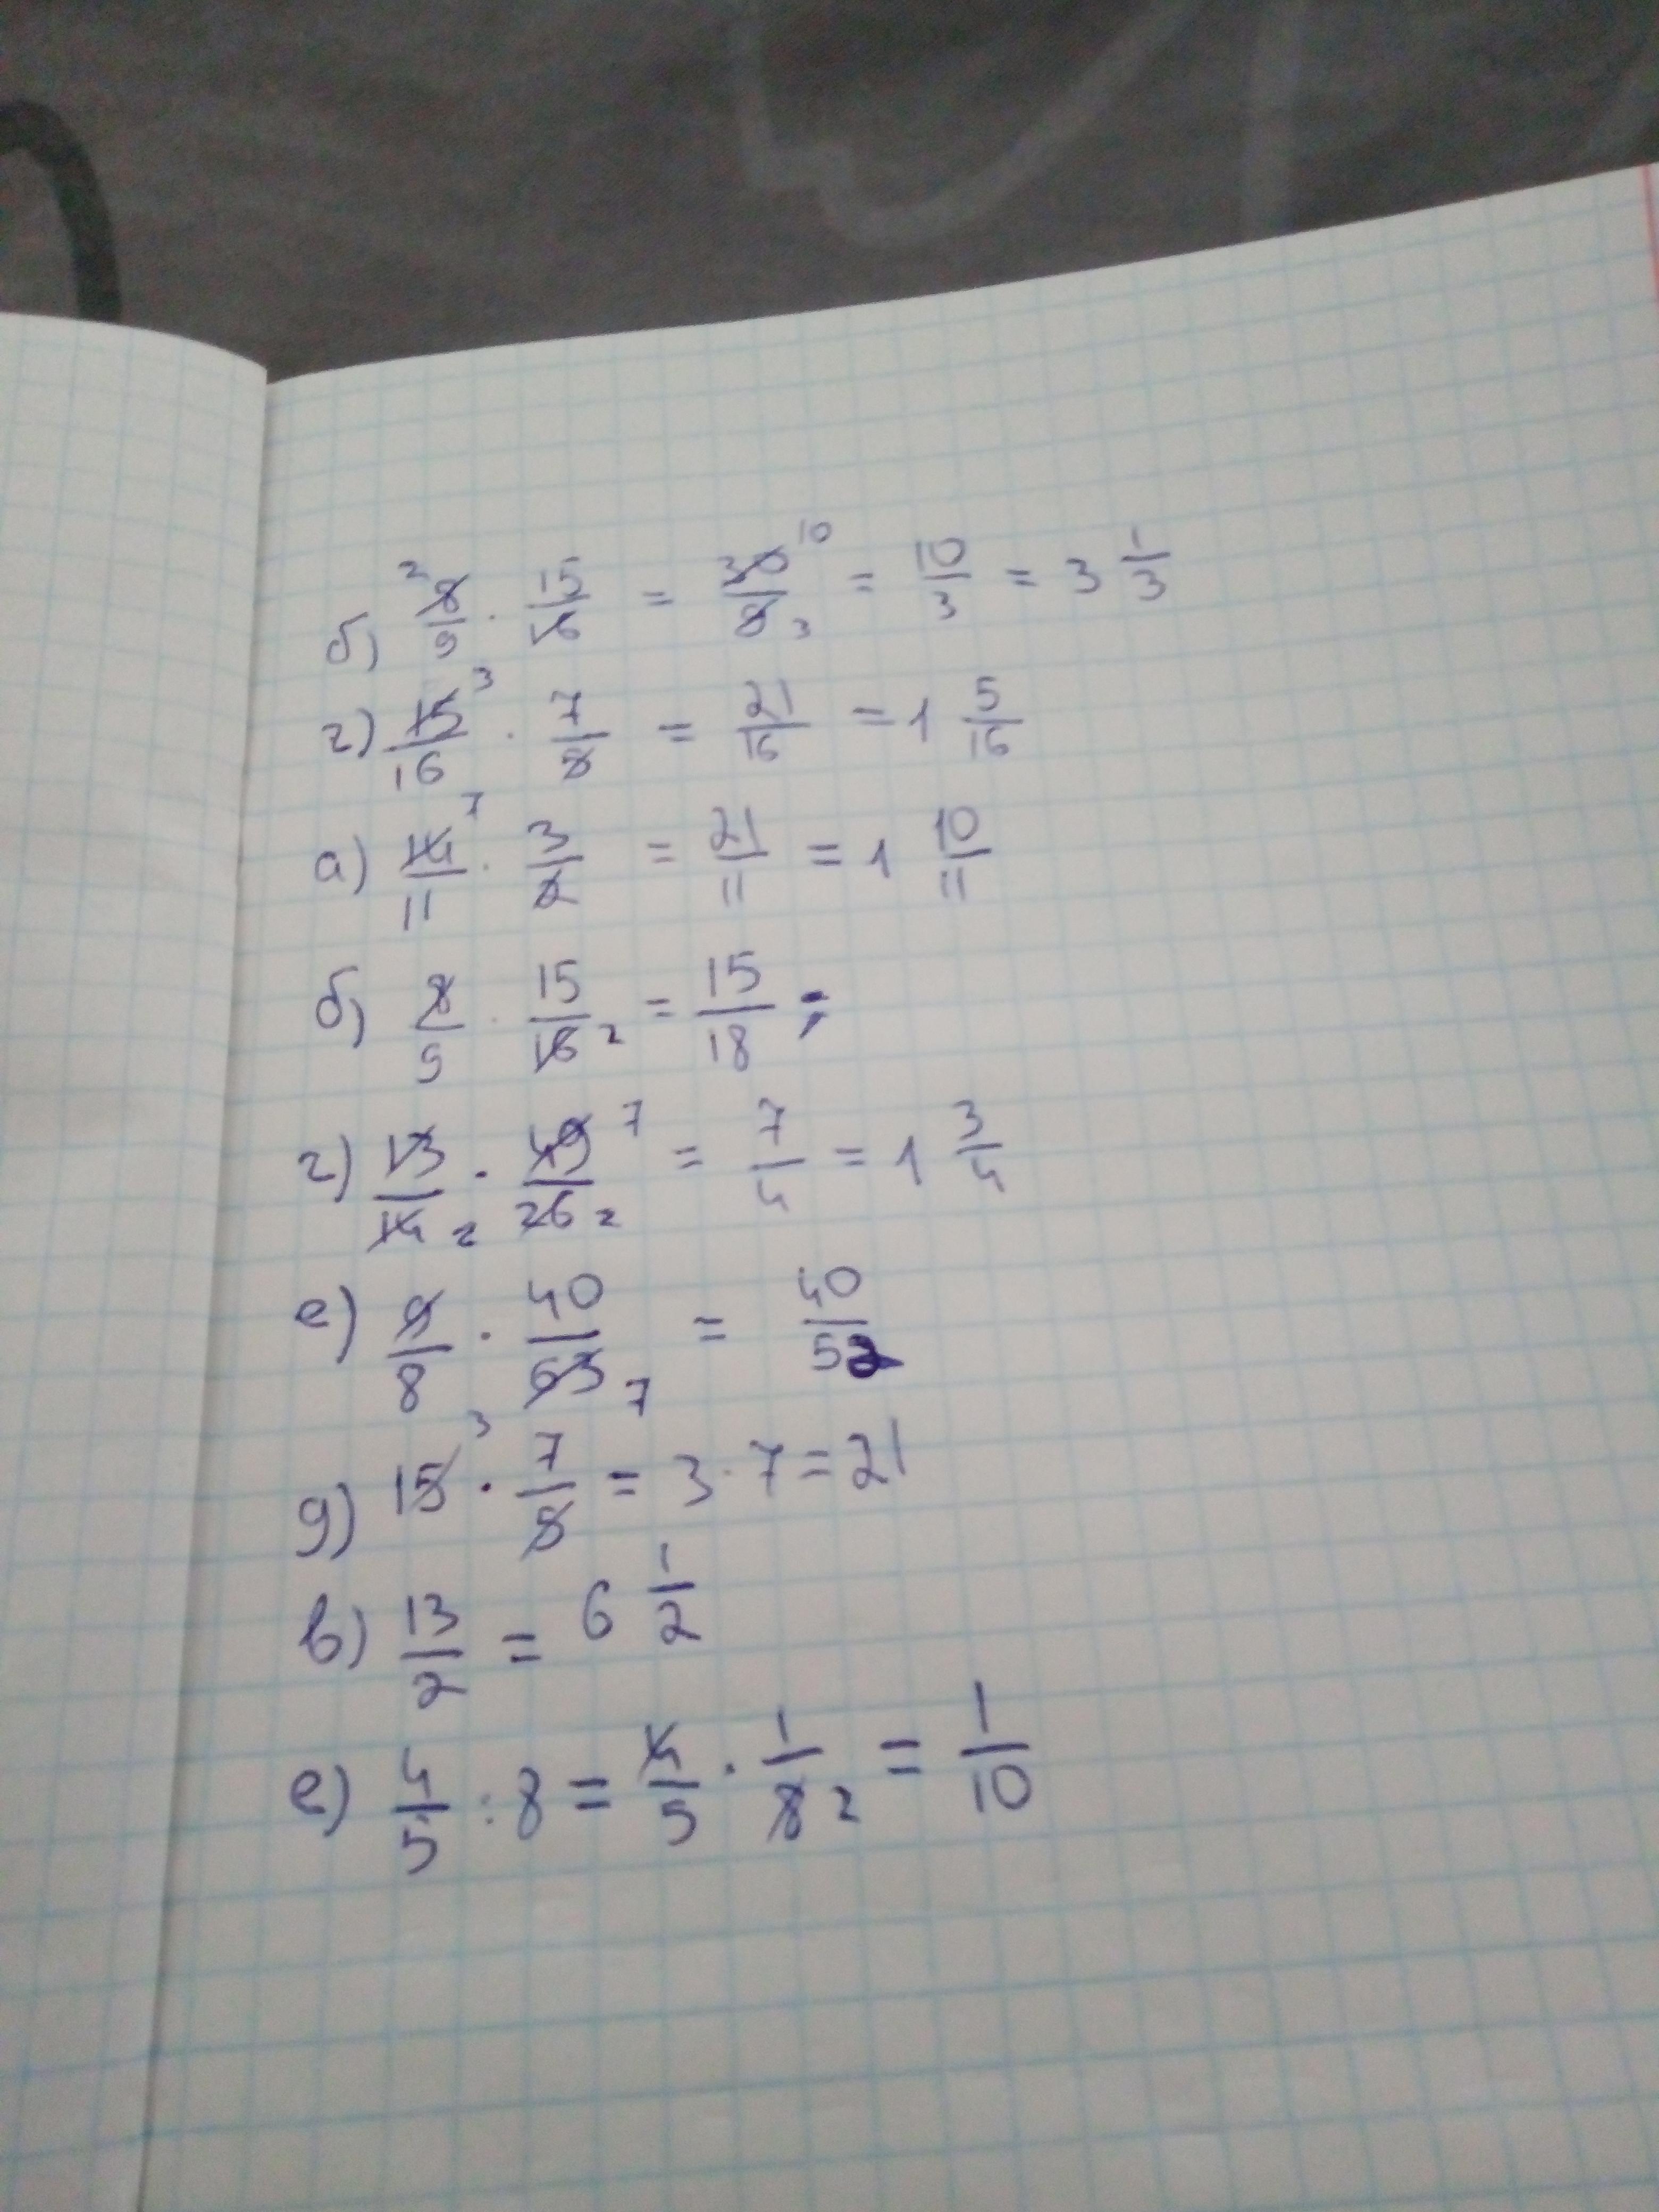 б) ²8/9 · 15/16 = 30/8 ¹⁰ ₃ = 10/3 = 3 1/3
г) 15/16 ³ · 7/8 = 21/16 = 1 5/16
а) 14/11 ⁷ · 3/2 = 21/11 = 1 10/11
б) 8/9 · 15/16 ₂ = 15/18 ;
г) 13/14 ₂ · 49/26 ⁷ ₂ = 7/4 = 1 3/4
е) 9/8 · 40/63 ₇ = 40/52
д) 15 ³ · 7/5 = 3 · 7 = 21
в) 13/2 = 6 1/2
е) 4/5 : 8 = 4/5 · 1/8 ₂ = 1/10